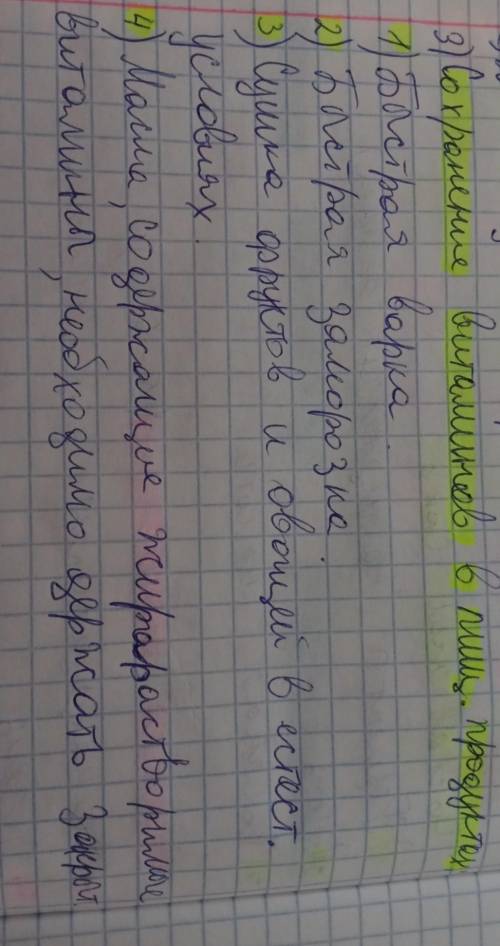 3) Сохранение витаминов в пищ. продуктах
1) Быстрая варка.
2) Быстрая заморозка
3) Сушка фруктов и овощей в естест.
условиях.
4) Масла, содержащие жирарастворимые
витамины, необходимо держать закрыт